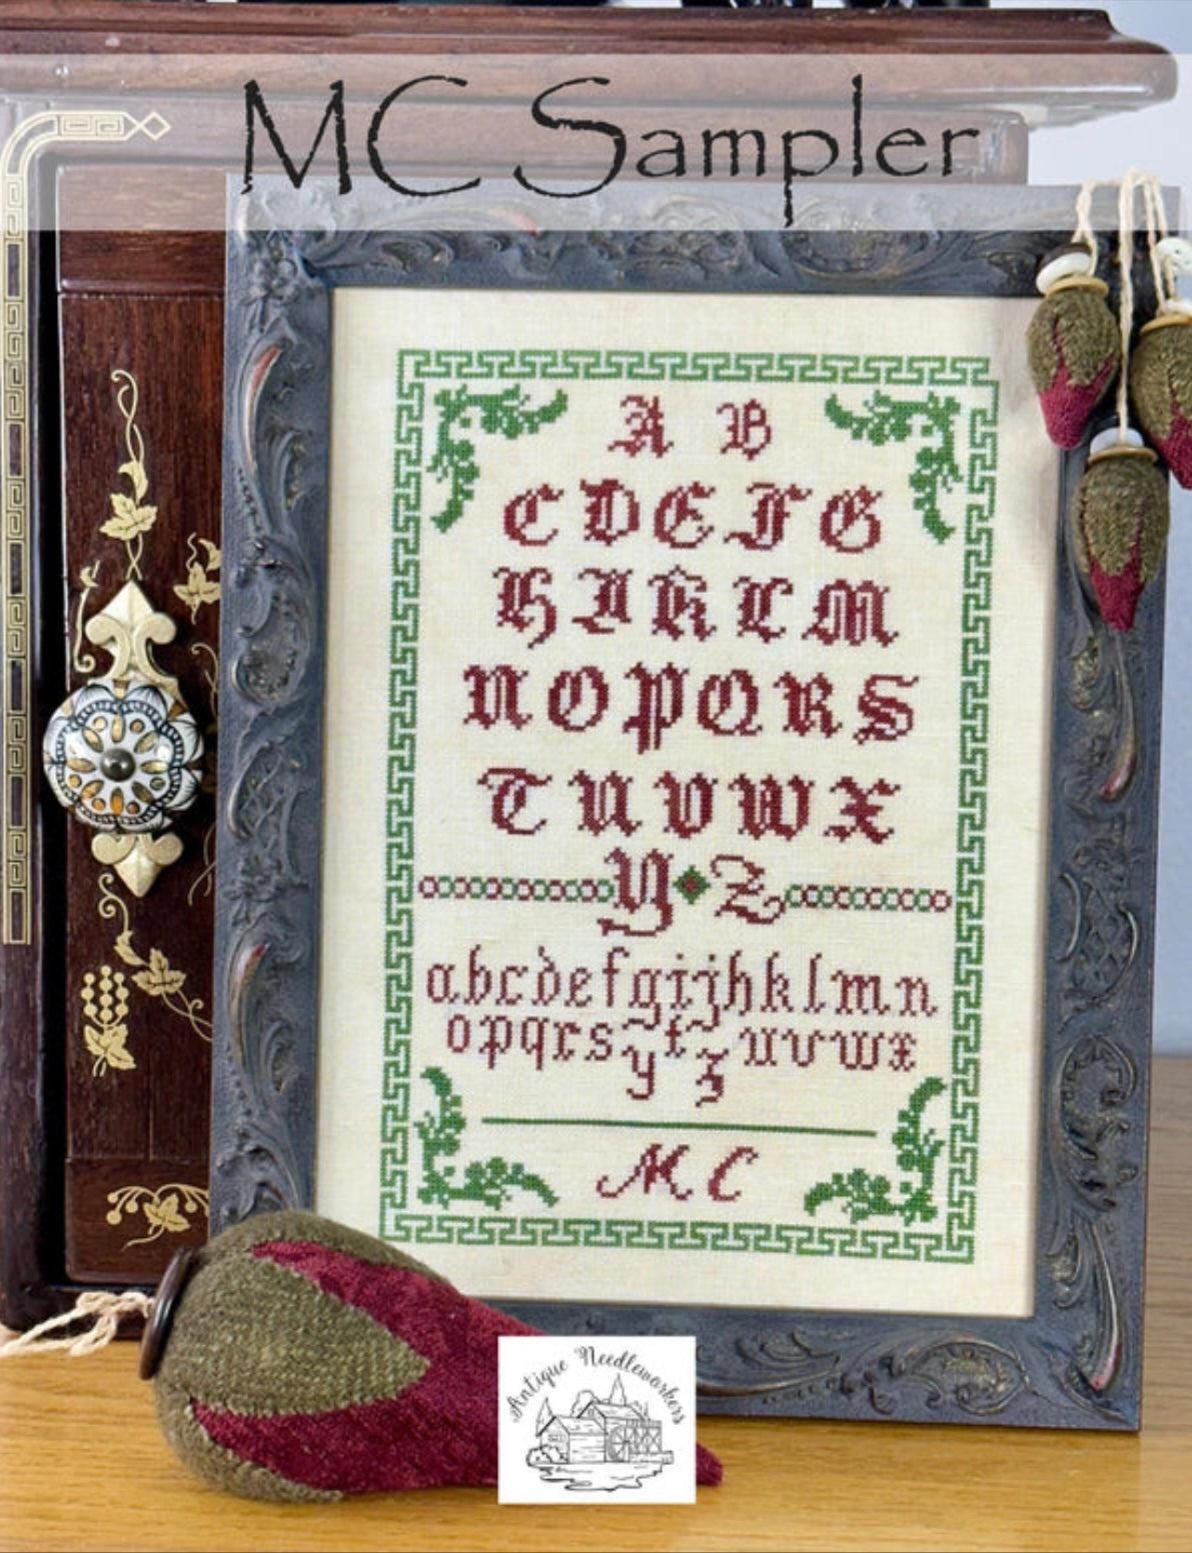 MC Sampler
A B
C D E F G
H I K L M
N O P Q R S
T U V W X
Y Z
a b c d e f g i j h k l m n
o p q r s t u v w x
y z
M C
Antique Needleworkers